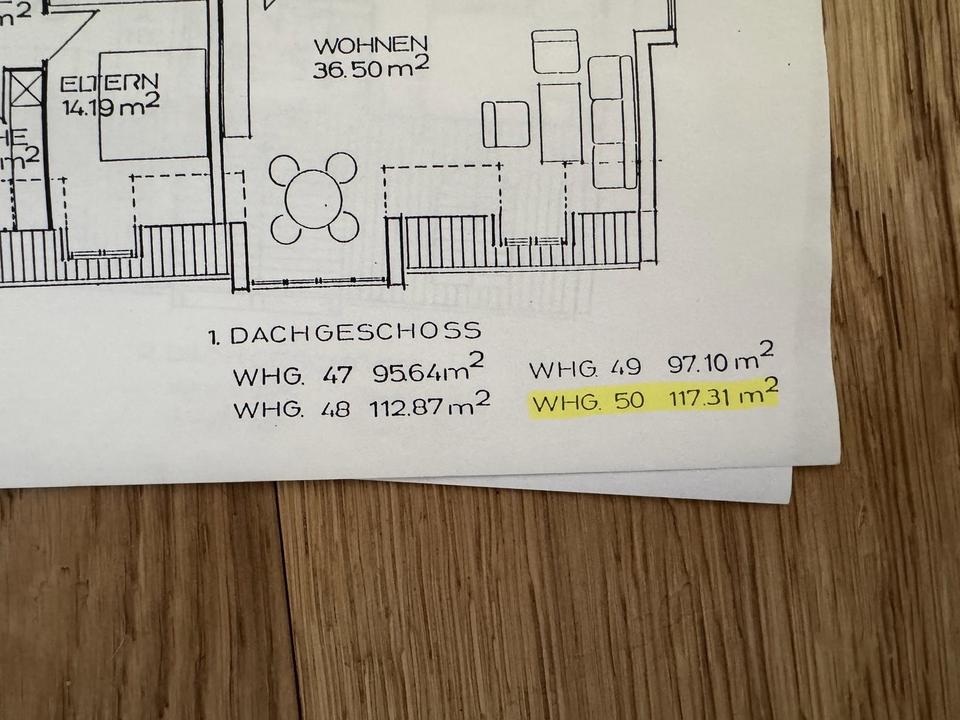 m2
WOHNEN
36.50 m2
ELTERN
14.19 m2
HE
m2
1. DACHGESCHOSS
WHG. 47 95.64m2
WHG. 48 112.87 m2
WHG. 49 97.10 m2
WHG. 50 117.31 m2